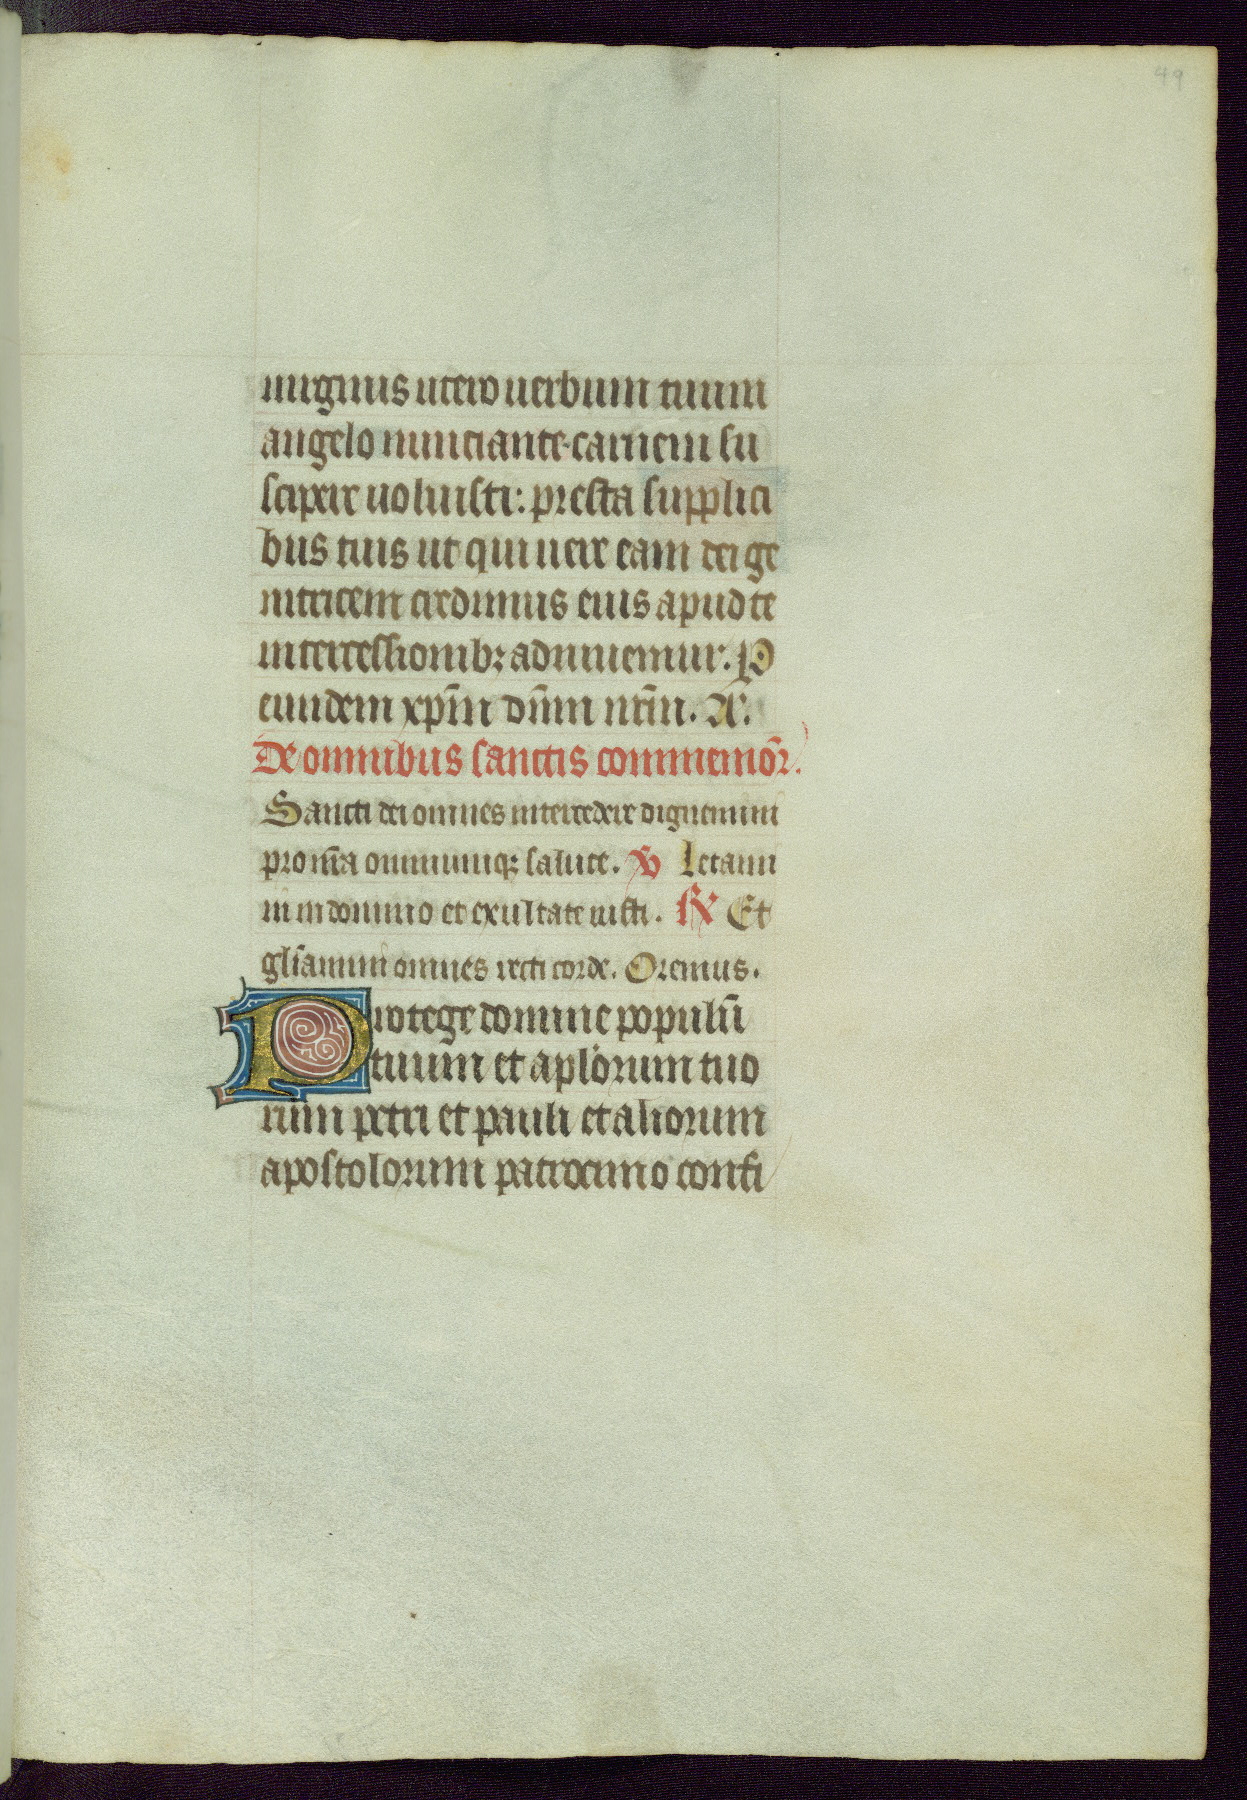 49
uirginis utero uerbum tuum
angelo nunciante carnem su
scipere uoluisti: presta supplici
bus tuis ut qui uere eam dei ge
nitricem credimus eius apud te
intercessionibꝫ adiuuemur. P
eundem xp̄m dn̄m nr̄m. A̅.
De omnibus sanctis commemor̄.
Sancti dei omnes intercedere dignemini
pro nr̄a omniumqꝫ salute. ℣ Letami
ni in domino et exultate iusti. ℟ Et
gl̄iamini omnes recti corde. Oremus.
Protege domine populū
tuum et apl̄orum tuo
rum petri et pauli et aliorum
apostolorum patrocinio confi